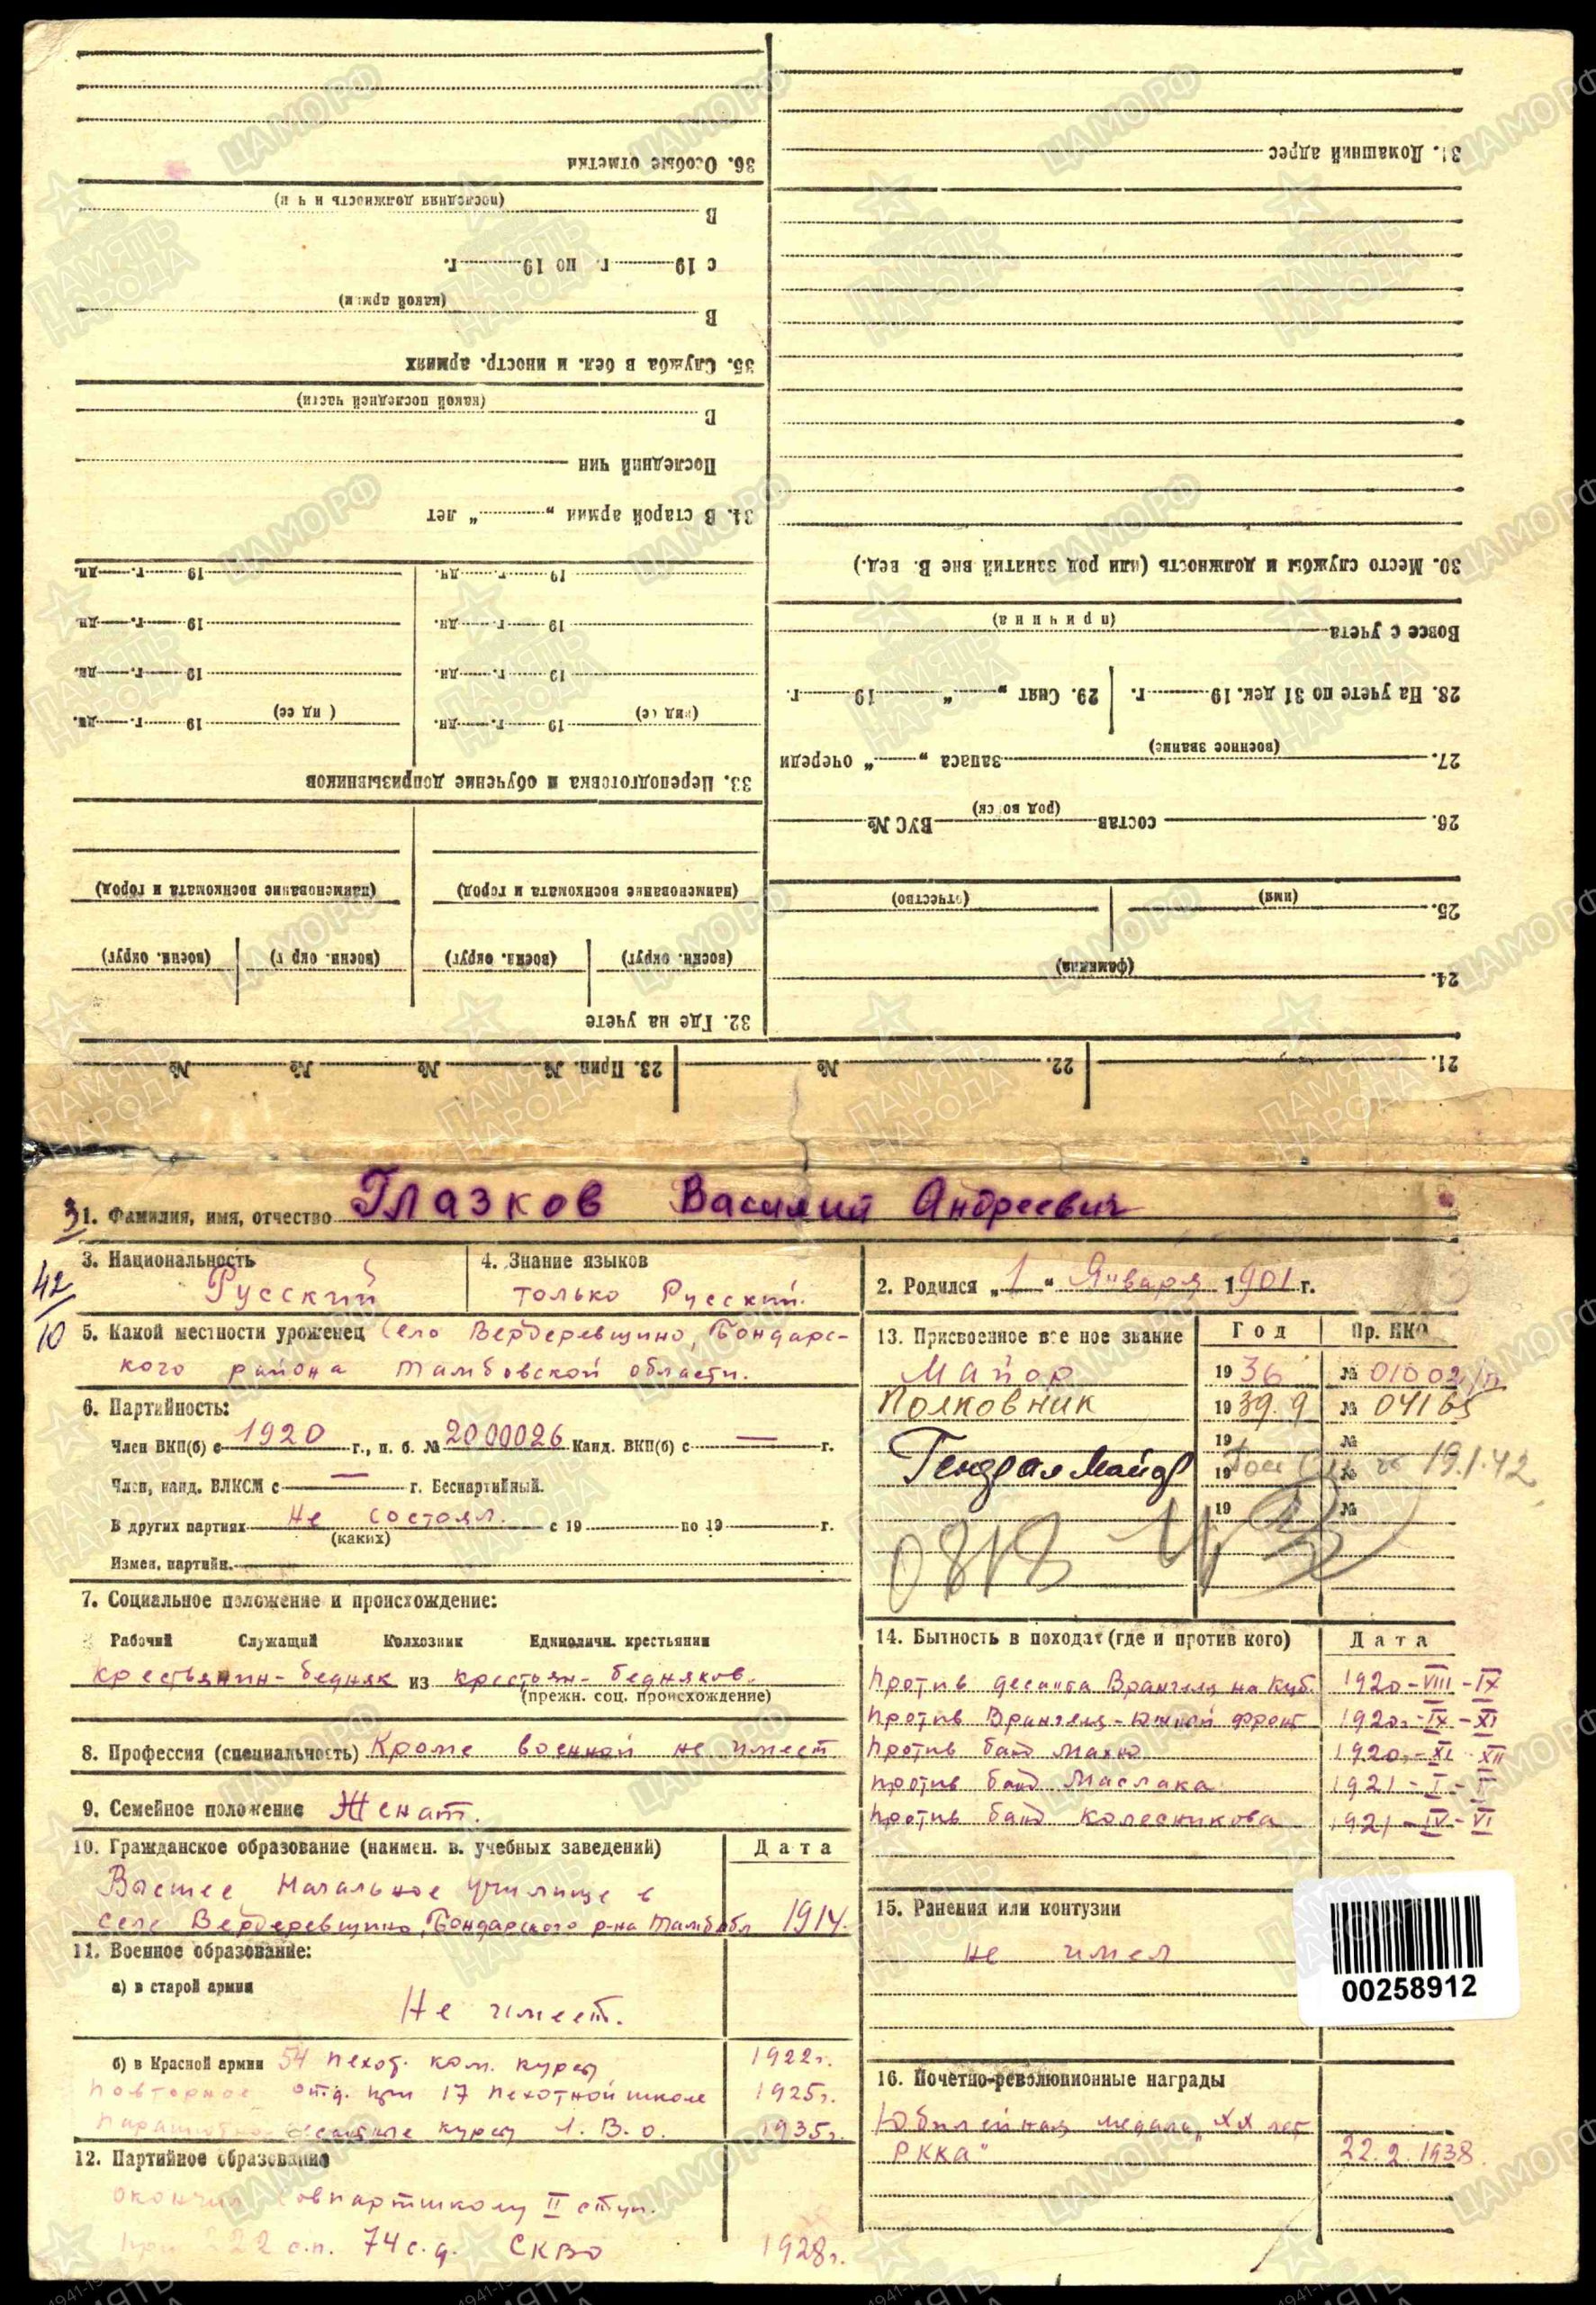 36. Особые отметки
В
(последняя должность и чин)
с 19 г. по 19 г.
В
(какой армии)
35. Служба в бел. и иностр. армиях
С
(какой последней части)
Последний чин
34. В старой армии „ “ лет
19 г. дн. 19 г. дн.
19 г. дн. 19 г. дн.
19 г. дн. 19 г. дн.
(вид сб) 19 г. дн. (вид сб) 19 г. дн.
33. Переподготовка и обучение допризывников
(наименование военкомата и город) (наименование военкомата и город)
(военн. округ) (военн. округ) (военн. округ) (военн. округ)
32. Где на учете
31. Домашний адрес
30. Место службы и должность (или род занятий вне В. вед.)
Вовсе с учета
(причина)
28. На учете по 31 дек. 19 г. 29. Снят „ “ 19 г.
27. запаса „ “ очереди
(военное звание)
26. состав ВУС №
(род войск)
25.
(имя) (отчество)
24.
(фамилия)
21. 22. № 23. Прип. № № № №
31. Фамилия, имя, отчество Глазков Василий Андреевич
42
10
3. Национальность Русский
4. Знание языков только Русский.
2. Родился „1“ Января 1901 г.
5. Какой местности уроженец Село Вердеревщино, Бондарс-
кого района Тамбовской области.
6. Партийность:
Член ВКП(б) с 1920 г., п. б. № 2000026 Канд. ВКП(б) с — г.
Член, канд. ВЛКСМ с — г. Беспартийный.
В других партиях Не состоял. с 19 по 19 г.
(каких)
Измен. партийн.
7. Социальное положение и происхождение:
Рабочий Служащий Колхозник Единоличн. крестьянин
крестьянин-бедняк из крестьян-бедняков.
(прежн. соц. происхождение)
8. Профессия (специальность) Кроме военной не имеет
9. Семейное положение Женат.
10. Гражданское образование (наимен. в. учебных заведений) Дата
Высшее Начальное училище в
селе Вердеревщино, Бондарского р-на Тамб. обл 1914.
11. Военное образование:
а) в старой армии
Не имеет.
б) в Красной армии 54 пехот. ком. курсы 1922г.
Повторное отд. при 17 пехотной школе 1925г.
Парашютно десантные курсы Л.В.О. 1935г.
12. Партийное образование
окончил совпартшколу II ступ.
при 222 с.п. 74 с.д. СКВО 1928г.
13. Присвоенное военное звание Год Пр. НКО
Майор 1936 № 01002/п
Полковник 1939.9 № 04165
19 №
Генерал Майор 19 № 19.1.42
19 №
0818
14. Бытность в походах (где и против кого) Дата
Против десанта Врангеля на Куб. 1920-VIII-IX
Против Врангеля-Южный фронт 1920.-IX-XI
Против банд Махно 1920.-XI-XII
Против банд Маслака 1921-I-
Против банд Колесникова 1921-IV-VI
15. Ранения или контузии
не имел
00258912
16. Почетно-революционные награды
Юбилейная медаль „XX лет
РККА“ 22.2.1938.
ЦАМО.РФ
ПАМЯТЬ
НАРОДА